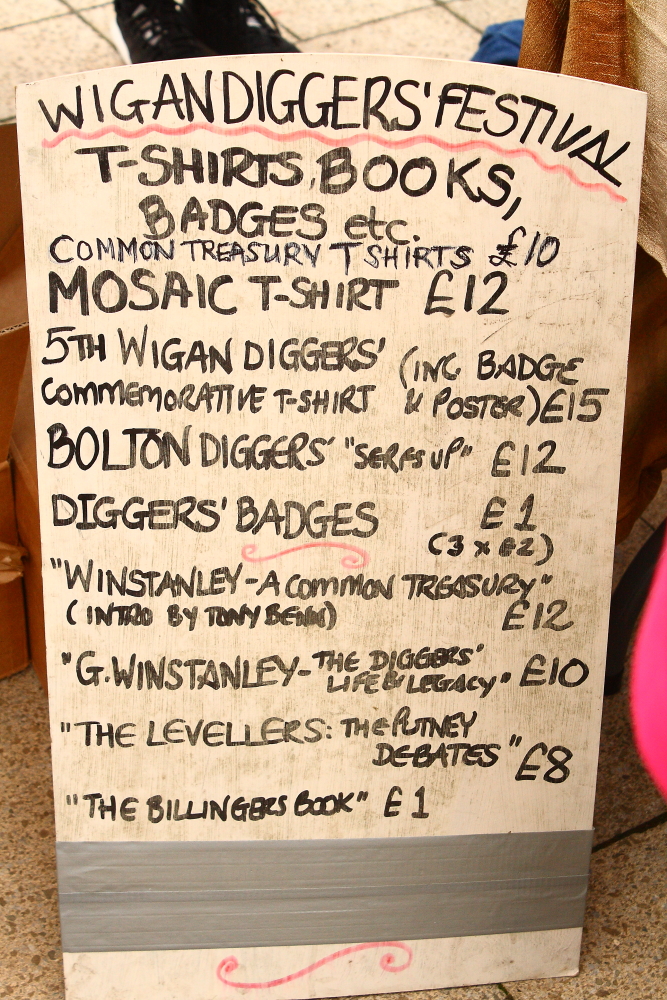 WIGAN DIGGERS' FESTIVAL
T-SHIRTS, BOOKS,
BADGES etc.
COMMON TREASURY T SHIRTS £10
MOSAIC T-SHIRT £12
5TH WIGAN DIGGERS' (INC BADGE
COMMEMORATIVE T-SHIRT & POSTER) £15
BOLTON DIGGERS' "SERFS UP" £12
DIGGERS' BADGES £1
(3 x £2)
"WINSTANLEY - A COMMON TREASURY"
(INTRO BY TONY BENN) £12
"G. WINSTANLEY - THE DIGGERS'
LIFE & LEGACY" £10
"THE LEVELLERS: THE PUTNEY
DEBATES" £8
"THE BILLINGERS BOOK" £1